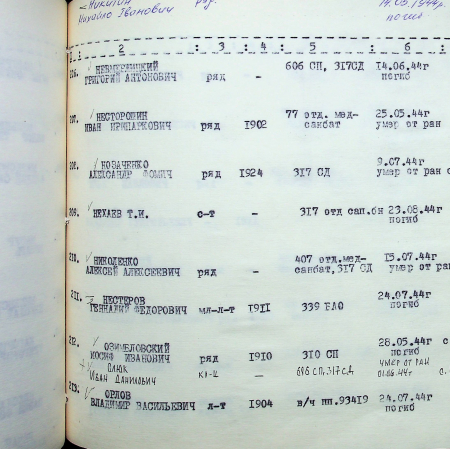 Никитин
Михайло Іванович ряд. 14.05.1944г.
погиб
: 2 : 3 : 4 : 5 : 6 :
НЕВМЕРЖИЦКИЙ 606 СП, 317СД 14.06.44г
ГРИГОРИЙ АНТОНОВИЧ ряд – погиб
207. НЕСТОРОШИН 77 отд. мед- 25.05.44г
ИВАН ИРИНАРКОВИЧ ряд 1902 санбат умер от ран
208. КОЗАЧЕНКО 9.07.44г
АЛЕКСАНДР ФОМИЧ ряд 1924 317 СД умер от ран
209. НЕХАЕВ Т.И. с-т – 317 отд сап.бн 23.08.44г
погиб
210. НИКОЛЕНКО 407 отд.мед- 15.07.44г
АЛЕКСЕЙ АЛЕКСЕЕВИЧ ряд – санбат,317 СД умер от ран
211. НЕСТЕРОВ 24.07.44г
ГЕННАДИЙ ФЕДОРОВИЧ мл-л-т 1911 339 БАО погиб
212. ОЗИМБЛОВСКИЙ 28.05.44г с
ИОСИФ ИВАНОВИЧ ряд 1910 310 СП погиб
Иван Данилович – 606 СП, 317 С.Д умер от ран
01.06.44г с.
213. ОРЛОВ 24.07.44г
ВЛАДИМИР ВАСИЛЬЕВИЧ л-т 1904 в/ч пп.93419 погиб